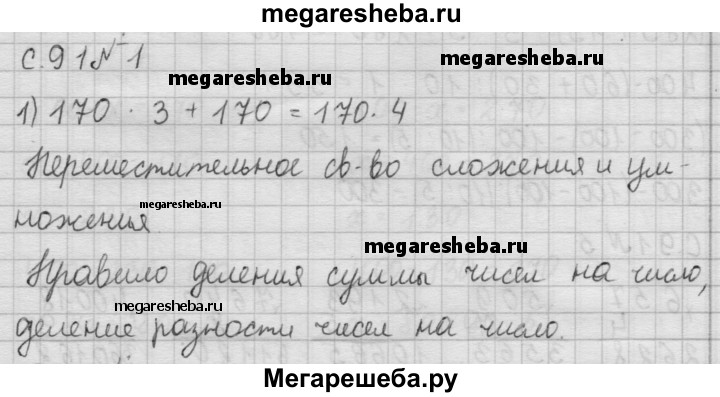 megaresheba.ru
с.91№1
megaresheba.ru
megaresheba.ru
1) 170 · 3 + 170 = 170 · 4
Переместительное св-во сложения и ум-
megaresheba.ru
ножения.
megaresheba.ru
Правило деления суммы чисел на число,
megaresheba.ru
деление разности чисел на число.
Мегарешеба.ру